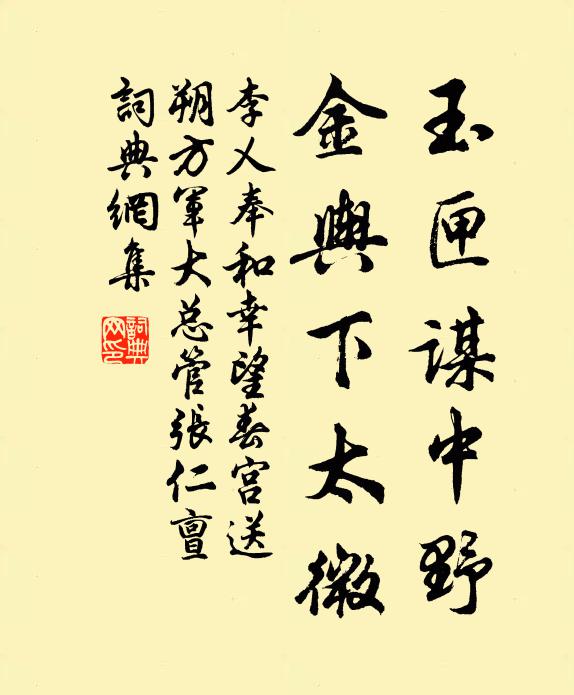 玉匣謀中野
金輿下太微
李乂奉和幸望春宮送
朔方軍大总管張仁亶
詞典網集
詞典网印